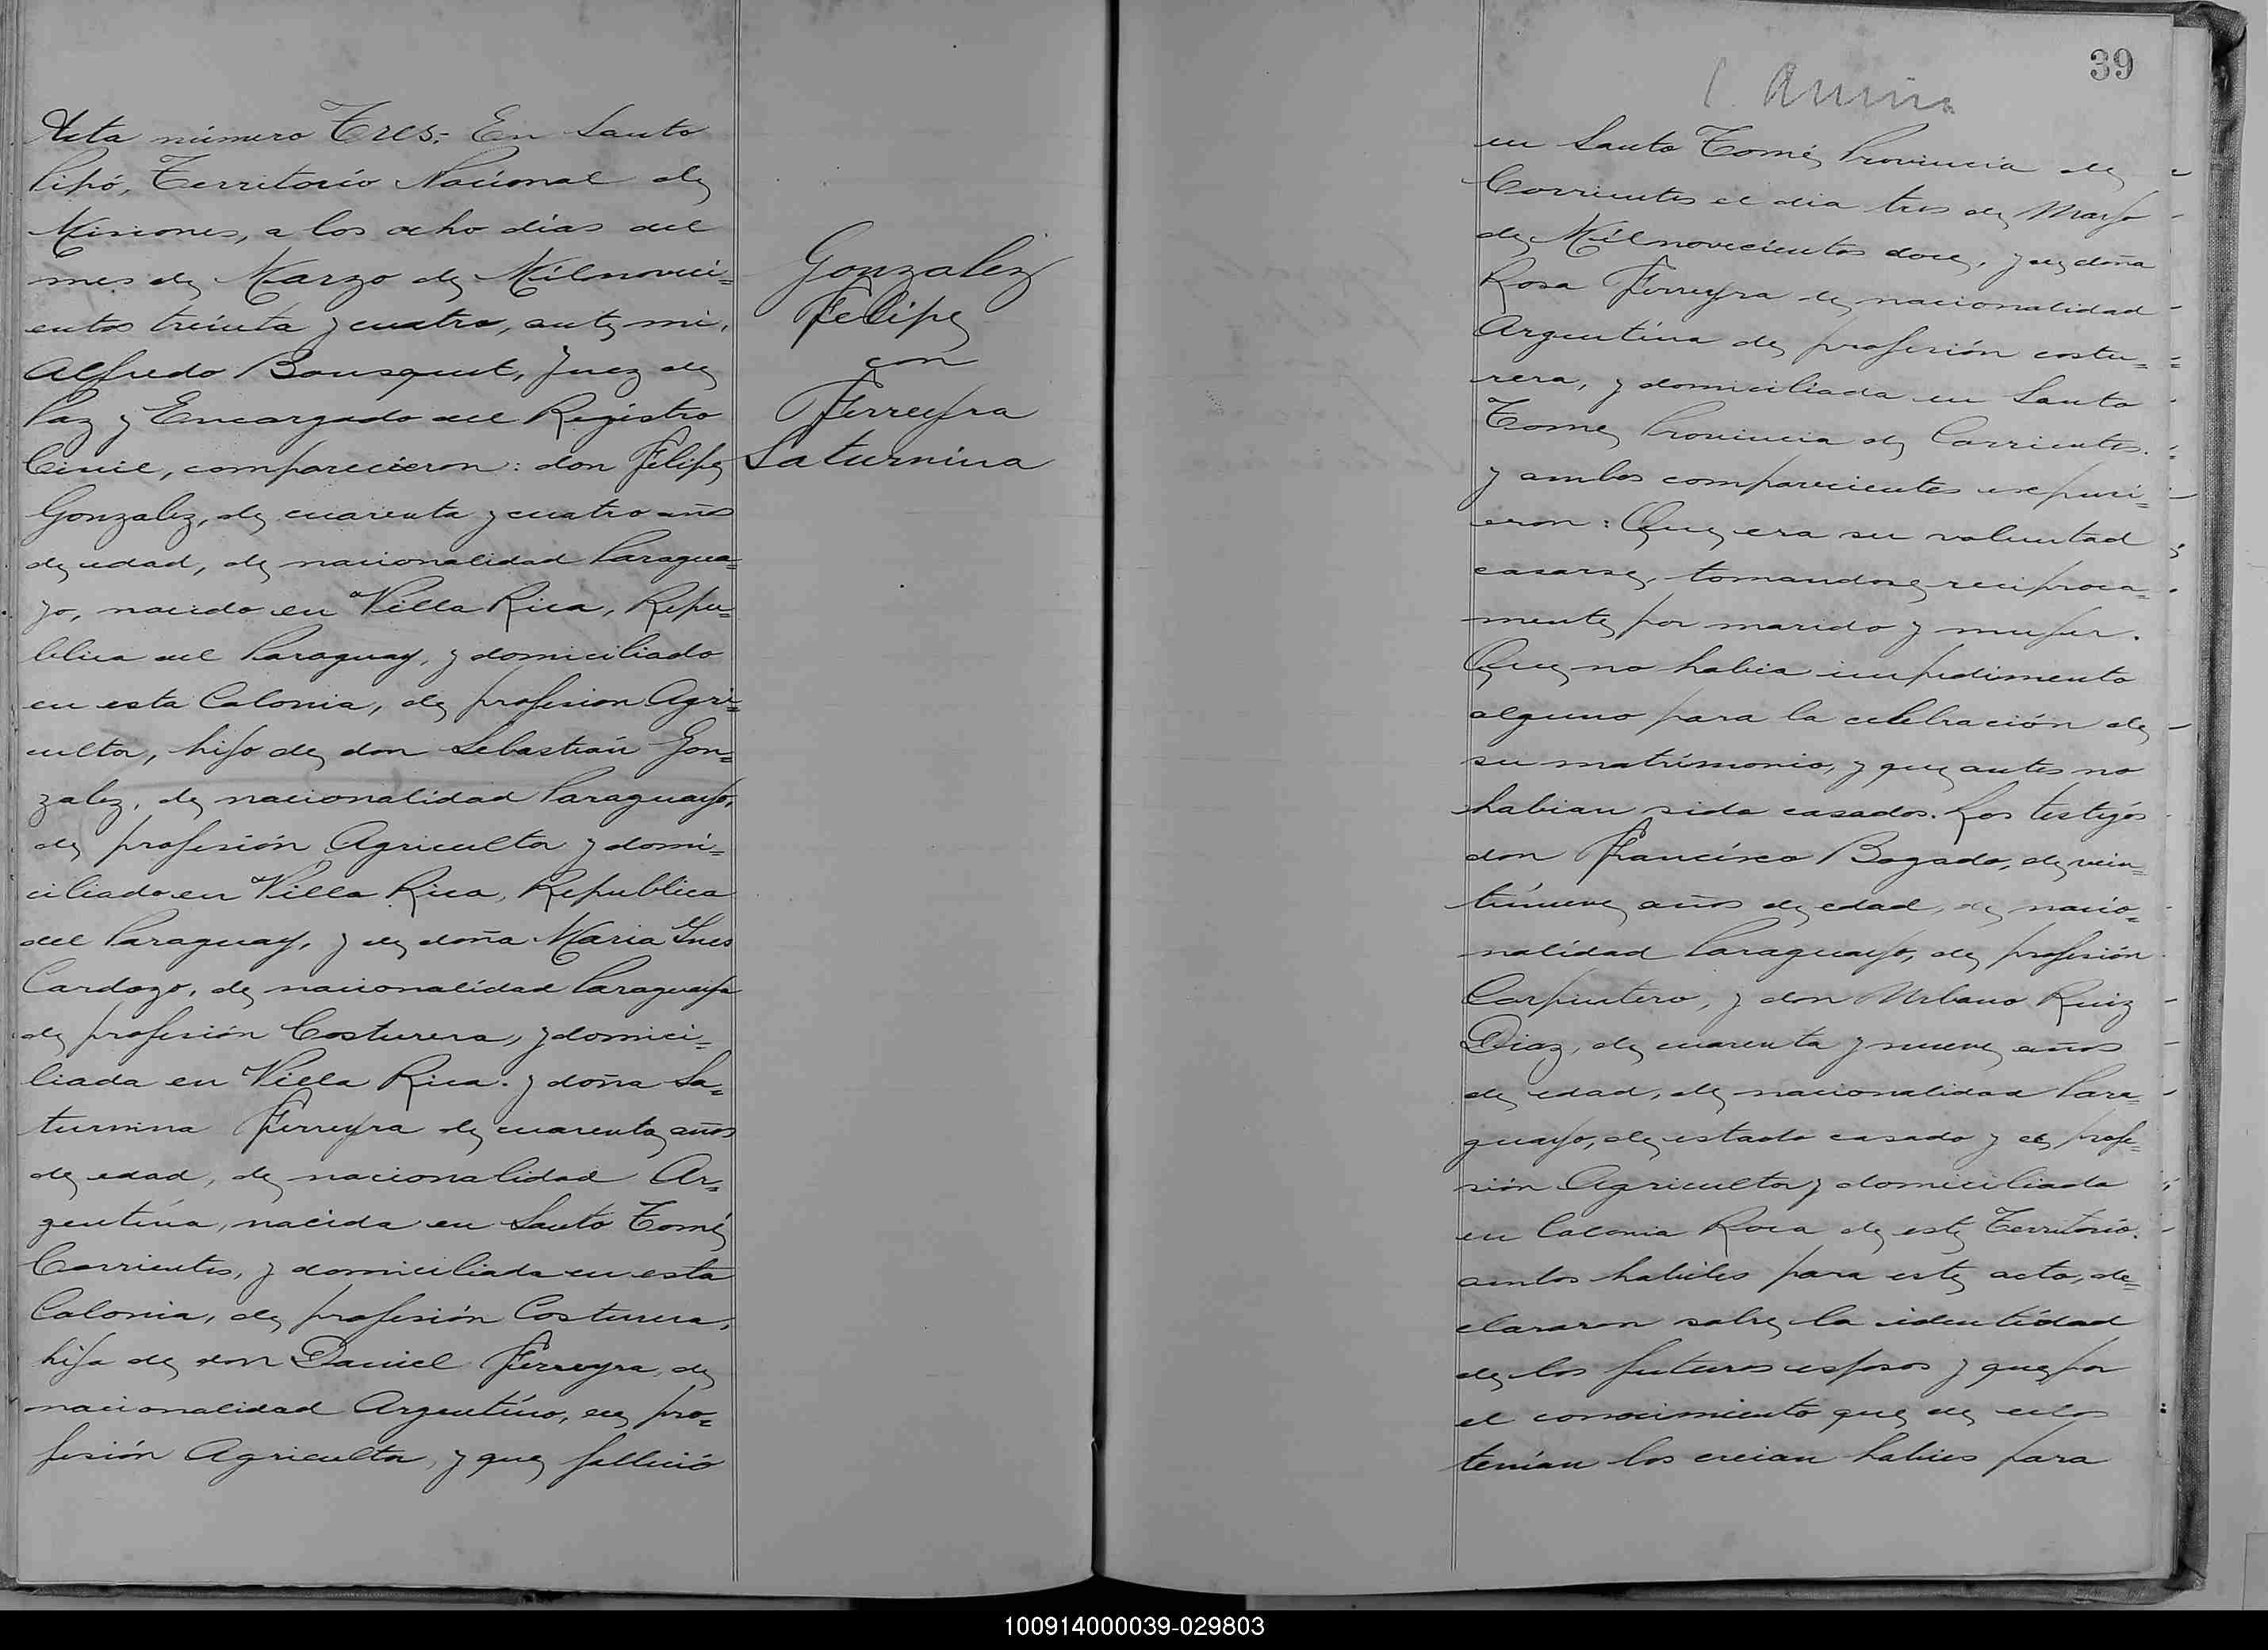 Acta número Tres:- En Santo
Pipó, Territorio Nacional de
Misiones, a los ocho días del
mes de Marzo de Milnoveci=
entos treinta y cuatro, ante mi,
Alfredo Bousquet, Juez de
Paz y Encargado del Registro
Civil, comparecieron: don Felipe
Gonzalez, de cuarenta y cuatro años
de edad, de nacionalidad Paragua=
yo, nacido en Villa Rica, Repu=
blica del Paraguay, y domiciliado
en esta Colonia, de profesion Agri=
cultor, hijo de don Sebastián Gon=
zalez, de nacionalidad Paraguayo,
de profesión Agricultor y domi=
ciliado en Villa Rica, Republica
del Paraguay, y de doña Maria Ines
Cardozo, de nacionalidad Paraguaya
de profesión Costurera, y domici=
liada en Villa Rica. y doña Sa=
turnina Ferreyra de cuarenta años
de edad, de nacionalidad Ar=
gentina, nacida en Santo Tomé
Corrientes, y domiciliada en esta
Colonia, de profesión Costurera,
hija de don Daniel Ferreyra, de
nacionalidad Argentino, de pro=
fesión Agricultor, y que falleció
Gonzalez
Felipe
con
Ferreyra
Saturnina
39
en Santo Tomé, Provincia de
Corrientes el dia tres de Mayo
de Milnovecientos doce, y de doña
Rosa Ferreyra de nacionalidad
Argentina de profesión costu=
rera, y domiciliada en Santo
Tome, Provincia de Corrientes.
y ambos comparecientes expusi=
eron: Que era su voluntad
casarse, tomandose reciproca=
mente por marido y mujer.
Que no habia impedimento
alguno para la celebración de
su matrimonio, y que antes no
habian sido casados. Los testigos
don Francisco Bogado, de vein=
tinueve años de edad, de nacio=
nalidad Paraguayo, de profesión
Carpintero, y don Urbano Ruiz
Diaz, de cuarenta y nueve años
de edad, de nacionalidad Para=
guayo, de estado casado y de profe=
sión Agricultor y domiciliado
en Colonia Roca de este Territorio.
ambos habiles para este acto, de=
clararon sobre la identidad
de los futuros esposos y que por
el conocimiento que de ellos
tenían los creian habiles para
100914000039-029803